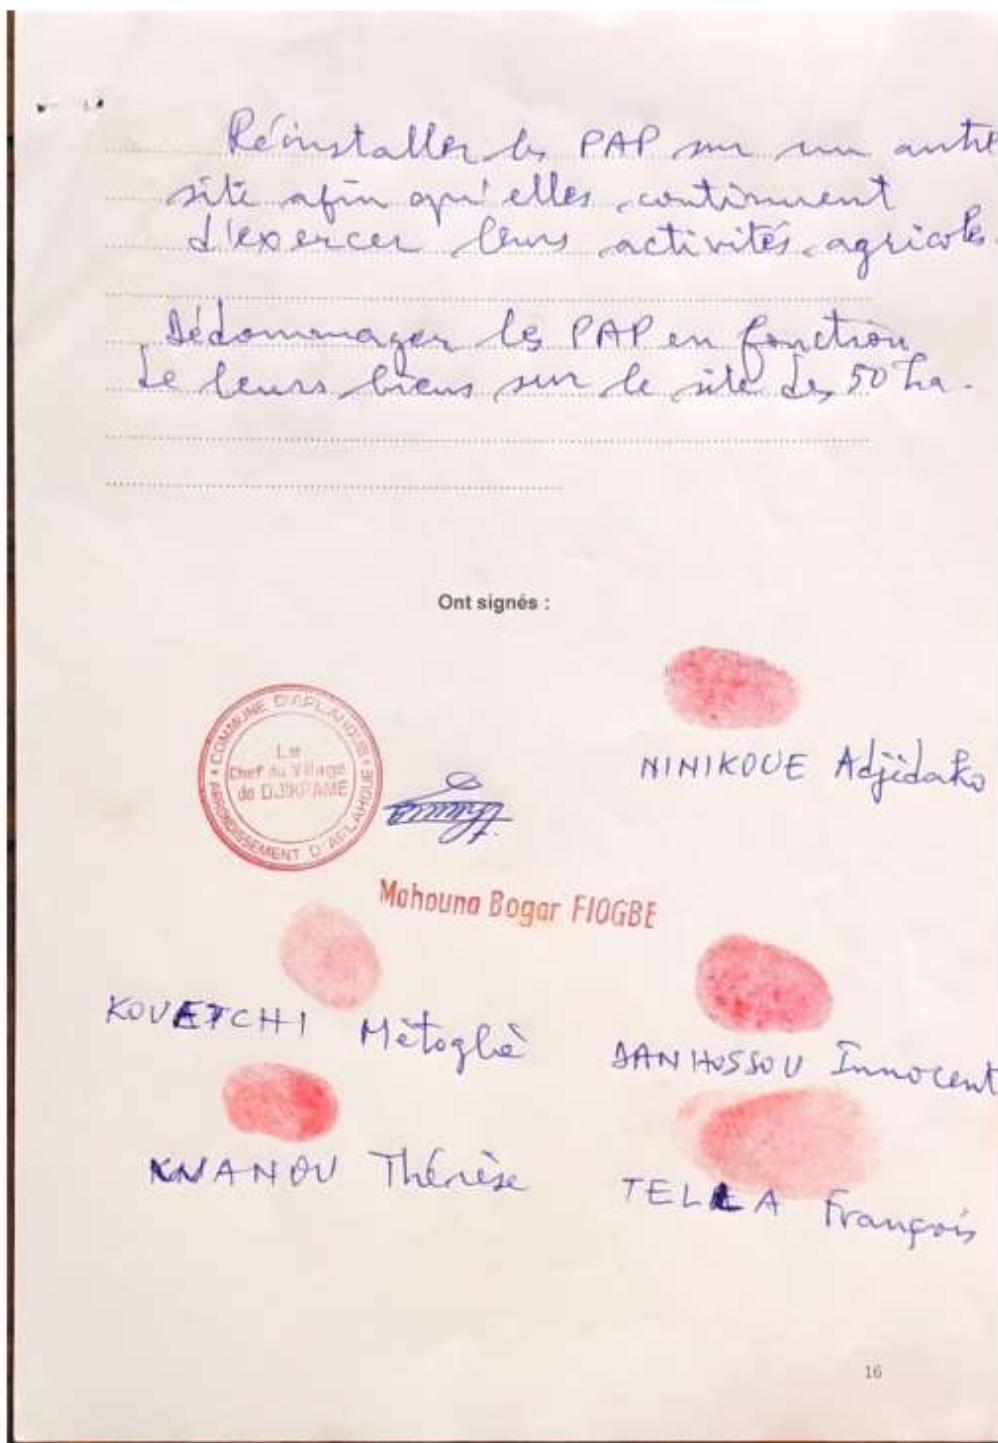 Réinstaller les PAP sur un autre
site afin qu'elles continuent
d'exercer leurs activités agricoles.
Dédommager les PAP en fonction
de leurs biens sur le site des 50 ha.
Ont signés :
NINIKOUE Adjidako
COMMUNE D'APLAHOUE
ARRONDISSEMENT D'APLAHOUE
Le
Chef du Village
de DJIKPAME
Mahouna Bogar FIOGBE
KOUETCHI Mètoglè
DANHOSSOU Innocent
Thérèse
TELLA François
16